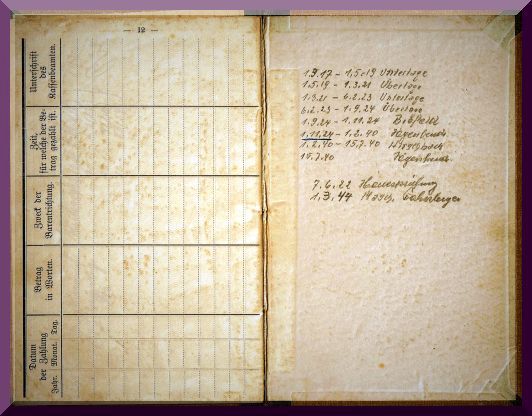 — 12 —
Unterschrift
des
Kassenbeamten.
Zeit,
für welche der Be-
trag gezahlt ist.
Zweck der
Bareinrichtung.
Betrag
in Worten.
Datum
der Zahlung
Jahr. Monat. Tag.
1.9.17 – 1.5.19 Untertage
1.5.19 – 1.3.21 Übertage
1.3.21 – 6.2.23 Untertage
6.2.23 – 1.9.24 Übertage
1.9.24 – 1.11.24
1.11.24 – 1.2.40
1.2.40 – 15.7.40
15.7.40
7.6.22 Hauerprüfung
1.3.44